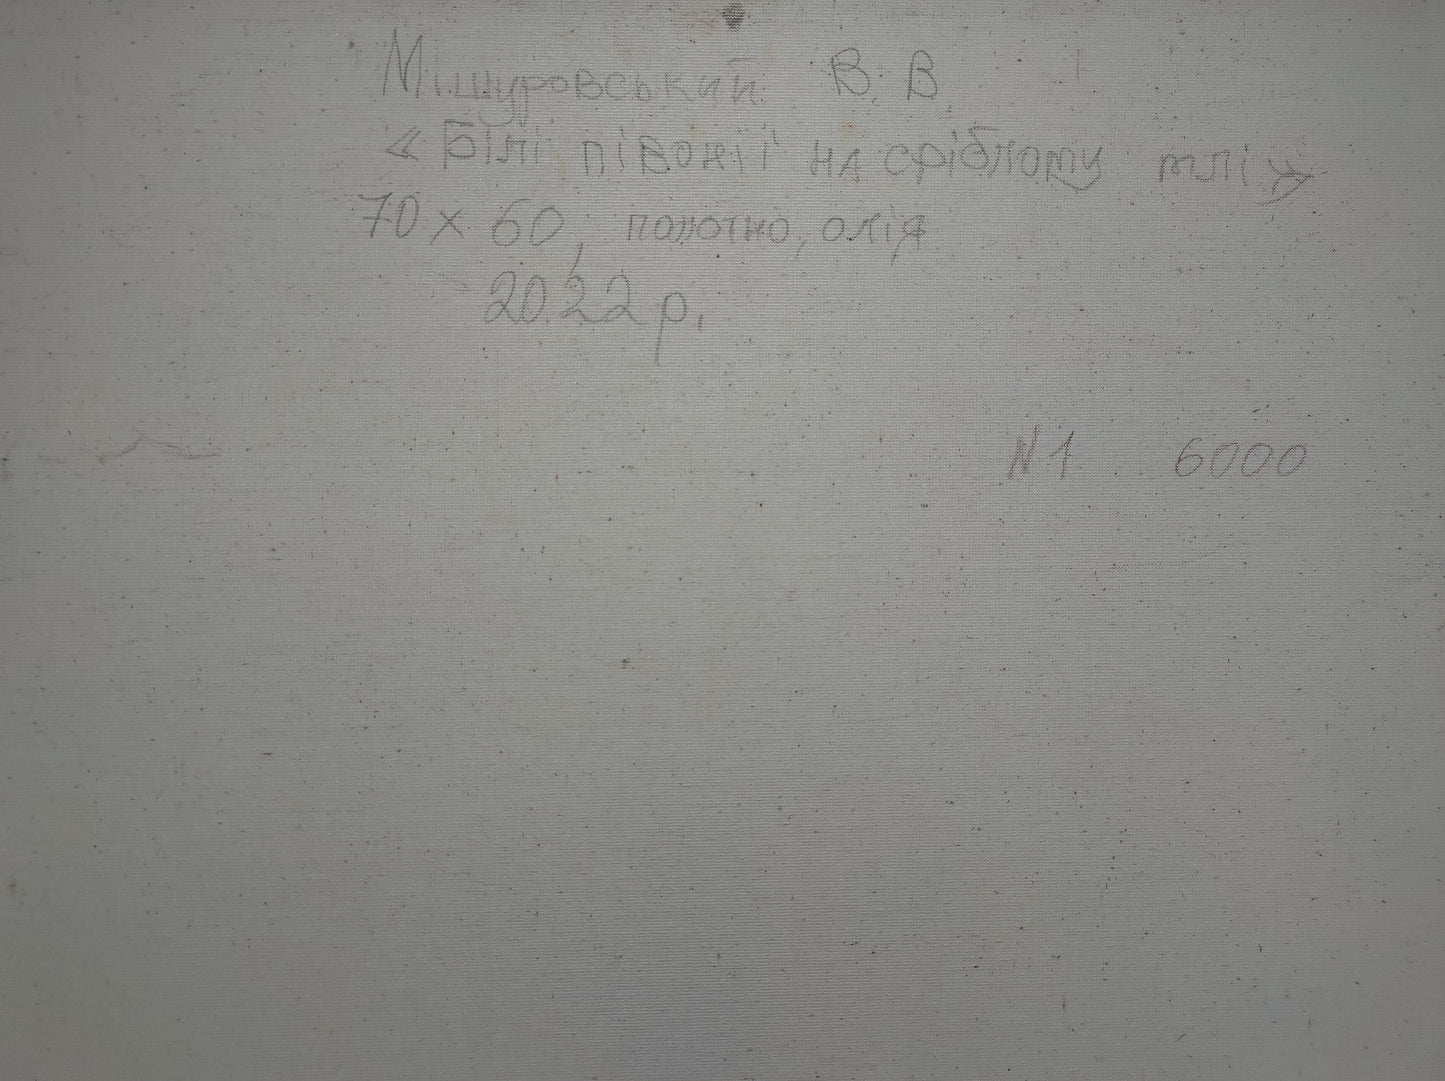 Мішуровський В. В.
« Білі півонії на срібному тлі »
70 х 60, полотно, олія
2022 р.
N1 6000